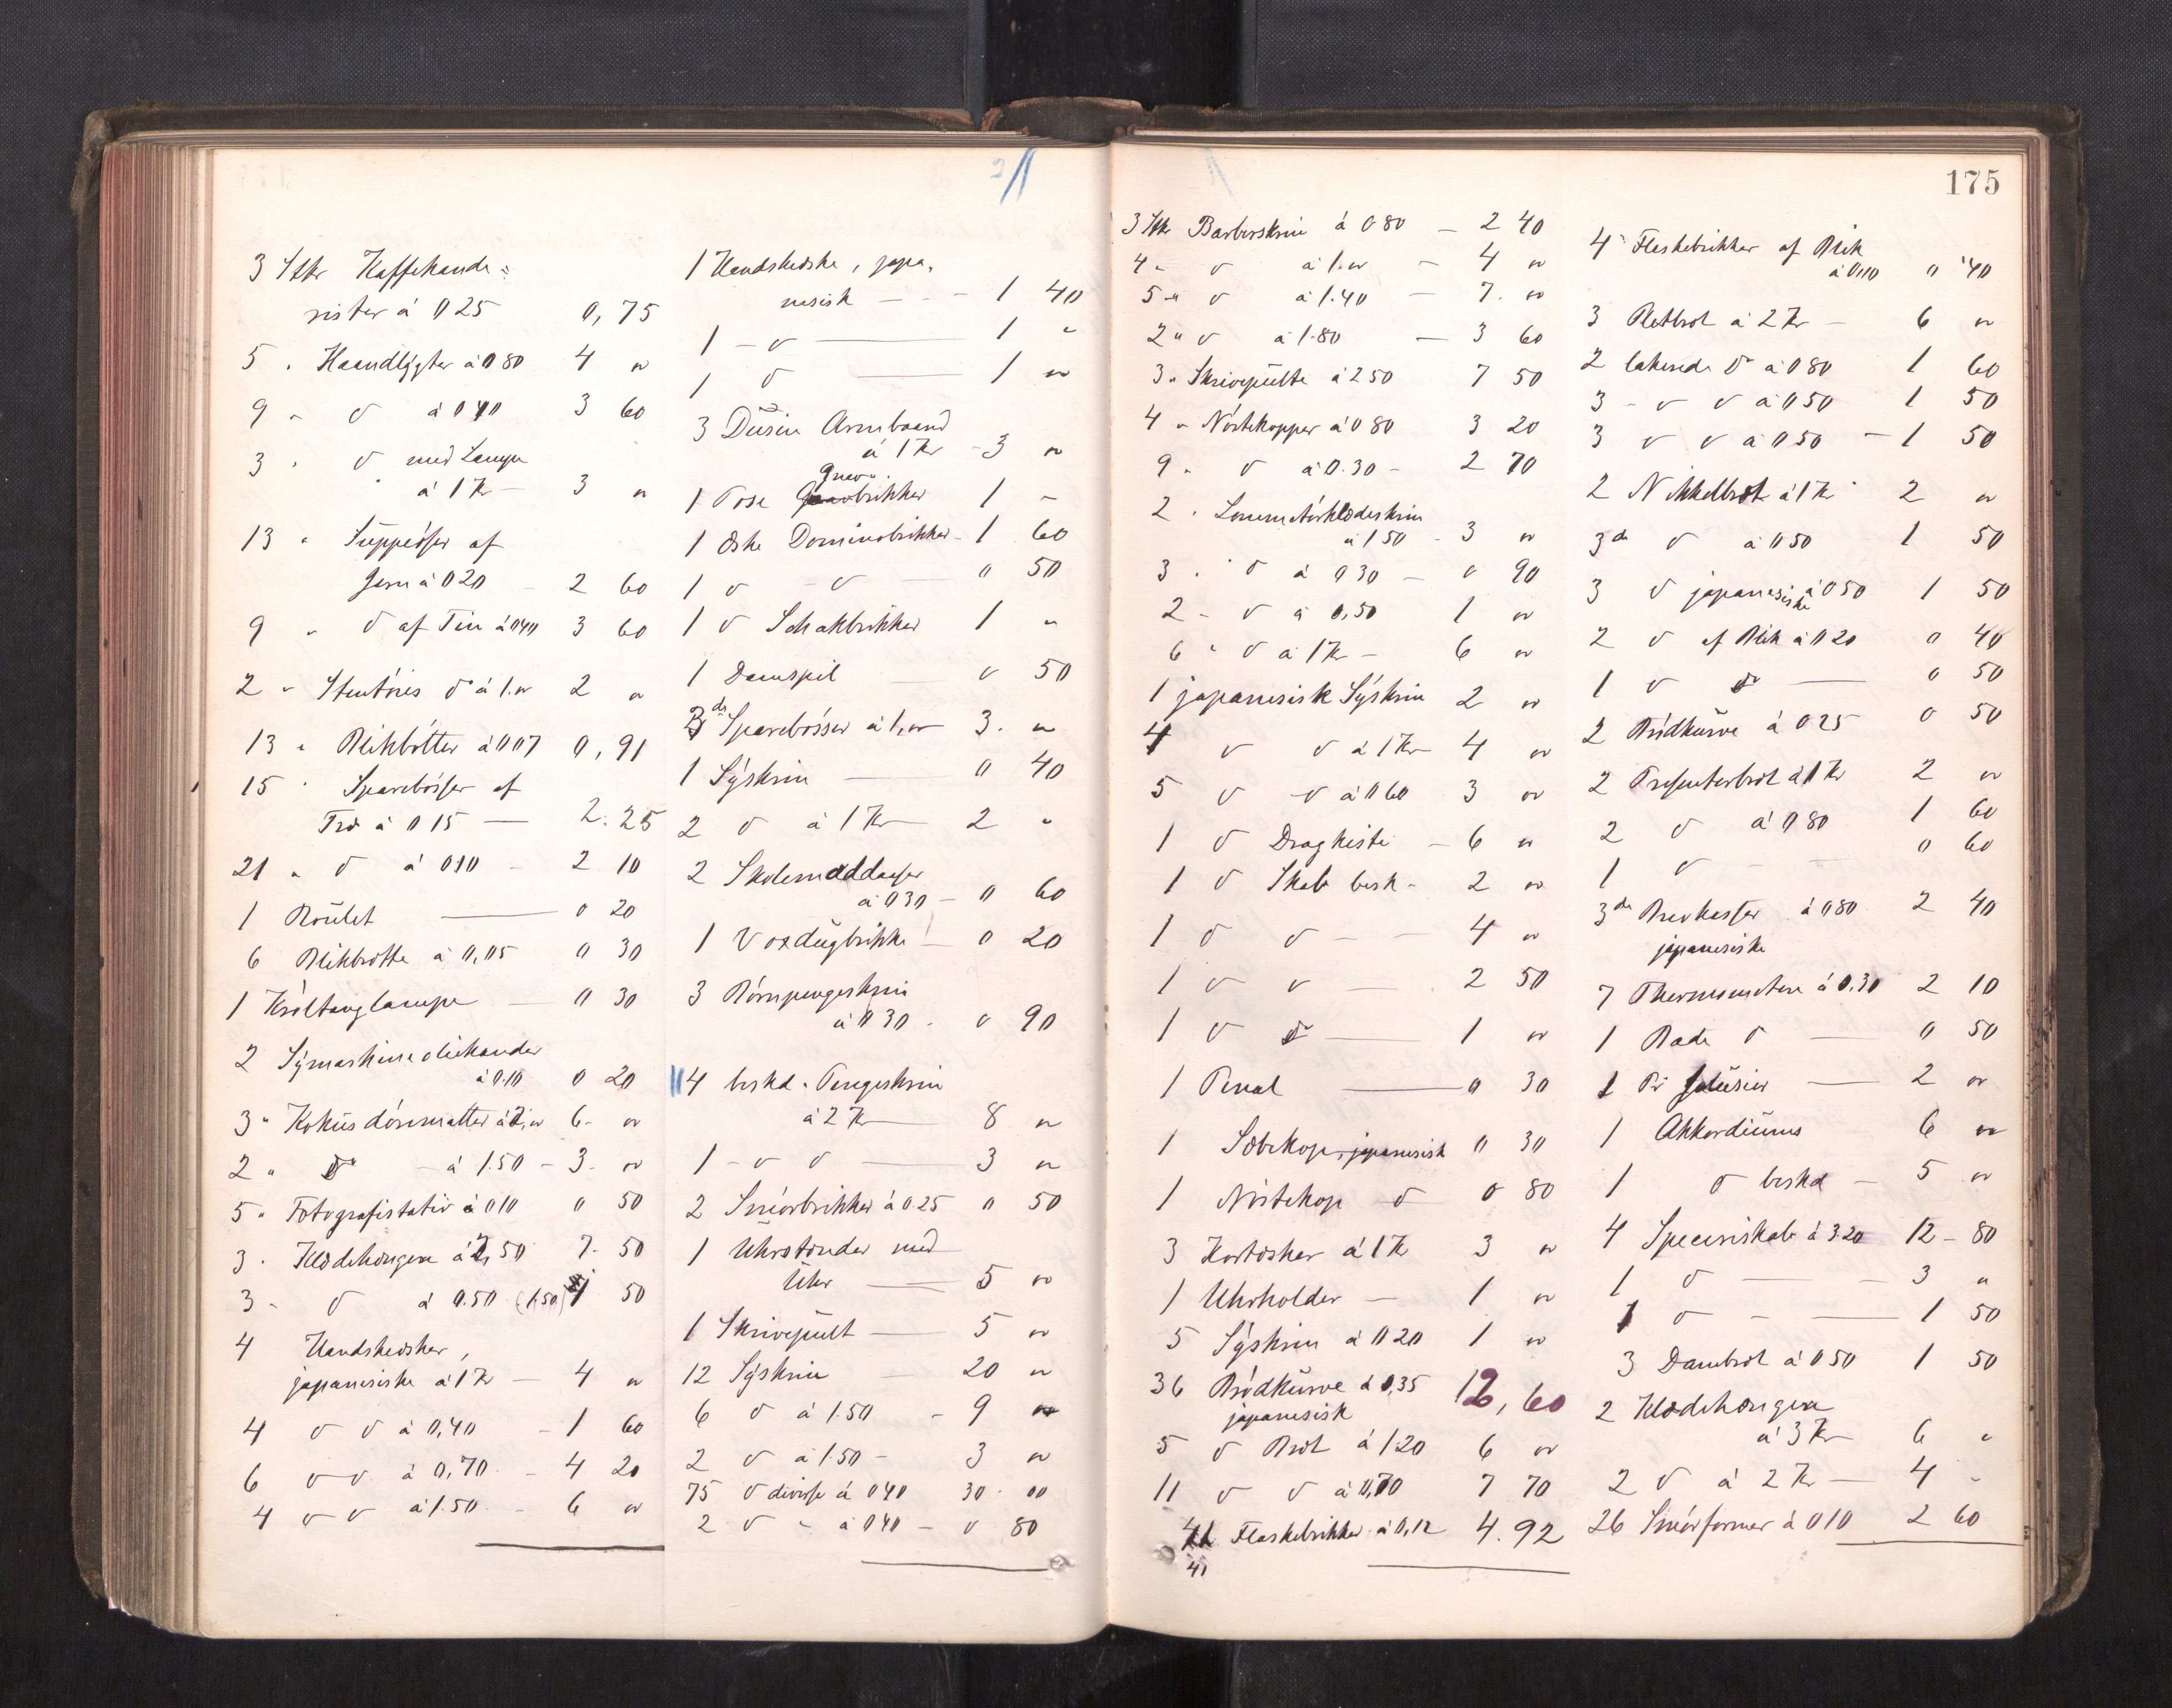 3 Stkr Kaffekande=
rister á 0 25 0,75
5 " Haandlygter á 0 80 4 "
9 " d á 0 40 3 60
3 " d med Lampe
á 1 Kr — 3 "
13 " Suppeøser af
Jern á 0 20 - 2 60
9 " d af Tin á 0 40 3 60
2 " Stentøis do á 1." 2 "
13 " Blikbøtter á 0 07 0,91
15 " Sparebøsser af
Træ á 0 15 — 2.25
21 " d á 0 10 - 2 10
1 Roulet — 0 20
6 Blikbrætte á 0,05 0 30
1 Krøltanglampe — 0 30
2 Symaskineoliekander
á 0.10 0 20
3 " Kokusdørmatter á 2," 6 - "
2 " do - á 1.50 - 3. "
5 " Fotografistativ á 0 10 0 50
3 " Klædehængere á 2,50 7. 50
3 " d á 0.50 (1.50) 1 50
4 Handskeæsker,
japanesiske á 1 Kr — 4 "
4 d d á 0,40 - 1 60
6 d d á 0,70 - 4 20
4 d d á 1.50 - 6 "
1 Handskeæske, japa-
nesisk - - - 1 40
1 - d — 1 "
1 d — 1 "
3 Dusin Armbaand
á 1 Kr - 3 "
Gnav
1 Pose brikker 1 -
1 Æske Dominobrikker - 1 60
1 d - d — 0 50
1 d Schakbrikker 1 "
1 Damspil — 0 50
3 ds Sparebøsser á 1," 3. "
1 Syskrin — 0 40
2 d á 1 Kr — 2 "
2 Skolemaddaaser
á 0 30 - 0 60
1 Voxdugbrikke — 0 20
3 Børnpengeskrin
á 0 30 - 0 90
4 beskd. Pengeskrin
á 2 Kr — 8 "
1 - d d — 3 "
2 Smørbrikker á 0.25 0 50
1 Uhrstænder med
Uhr — 5 "
1 Skrivepult — 5 "
12 Syskrin — 20 "
6 d á 1.50 - 9 "
2 d á 1.50 - 3 "
75 d diverse á 0 40 30 - 00
2 d " á 0 40 - 0 80
175
3 Stkr Barberskrin á 0 80 — 2 40
4 " d á 1." — 4 "
5 " d á 1.40 — 7. "
2 " d á 1.80 — 3 60
3 " Skrivepulte á 2 50 7 50
4 " Nøstekopper á 0 80 3 20
9 " d á 0.30 - 2 70
2 " Lommetørklædeskrin
á 1 50 - 3 "
3 " d á 0 30 — 0 90
2 - d á 0,50 1 "
6 " d á 1 Kr — 6 "
1 japanesisk Syskrin 2 "
4 d d á 1 Kr — 4 "
5 d d á 0 60 3 "
1 d Dragkiste - 6 "
1 d Skab besk - 2 "
1 d d - - 4 "
1 d d — 2 50
1 d do — 1 "
1 Penal — 0 30
1 Sæbekop, japanesisk 0 30
1 Nøstekop d 0 80
3 Kortæsker á 1 Kr 3 "
1 Uhrholder — 1 "
5 Syskrin á 0 20 1 "
36 Brødkurve á 0,35 12,60
japanesisk
5 d Bræt á 1.20 6 "
11 d d á 0,70 7 70
41 Flaskebrikker á 0,12 4.92
41
4 Flaskebrikker af Blik
á 0,10 0 40
3 Pletbræt á 2 Kr — 6 "
2 lakerede do á 0 80 1 60
3 - d d á 0 50 1 50
3 d d á 0 50 - 1 50
2 Nikkelbræt á 1 Kr 2 "
3 ds d á 0 50 1 50
3 d japanesiske á 0 50 1 50
2 d af Blik á 0 20 0 40
1 d do — 0 50
2 Brødkurve á 0 25 0 50
2 Presenterbræt á 1 Kr 2 "
2 d á 0 80 1 60
1 d - - 0 60
3 ds Brevkasser á 0 80 2 40
japanesiske
7 Thermometere á 0.30 2 10
1 Bade d — 0 50
1 Pr Jalusier — 2 "
1 Akkordiums 6 "
1 d beskd - 5 "
4 Speceriskab á 3.20 12 - 80
1 d — - 3 "
1 d - — 1 50
3 Dambræt á 0 50 1 50
2 Klædehængere
á 3 Kr 6 "
2 d á 2 Kr — 4 -
26 Smørformer á 0 10 2 60